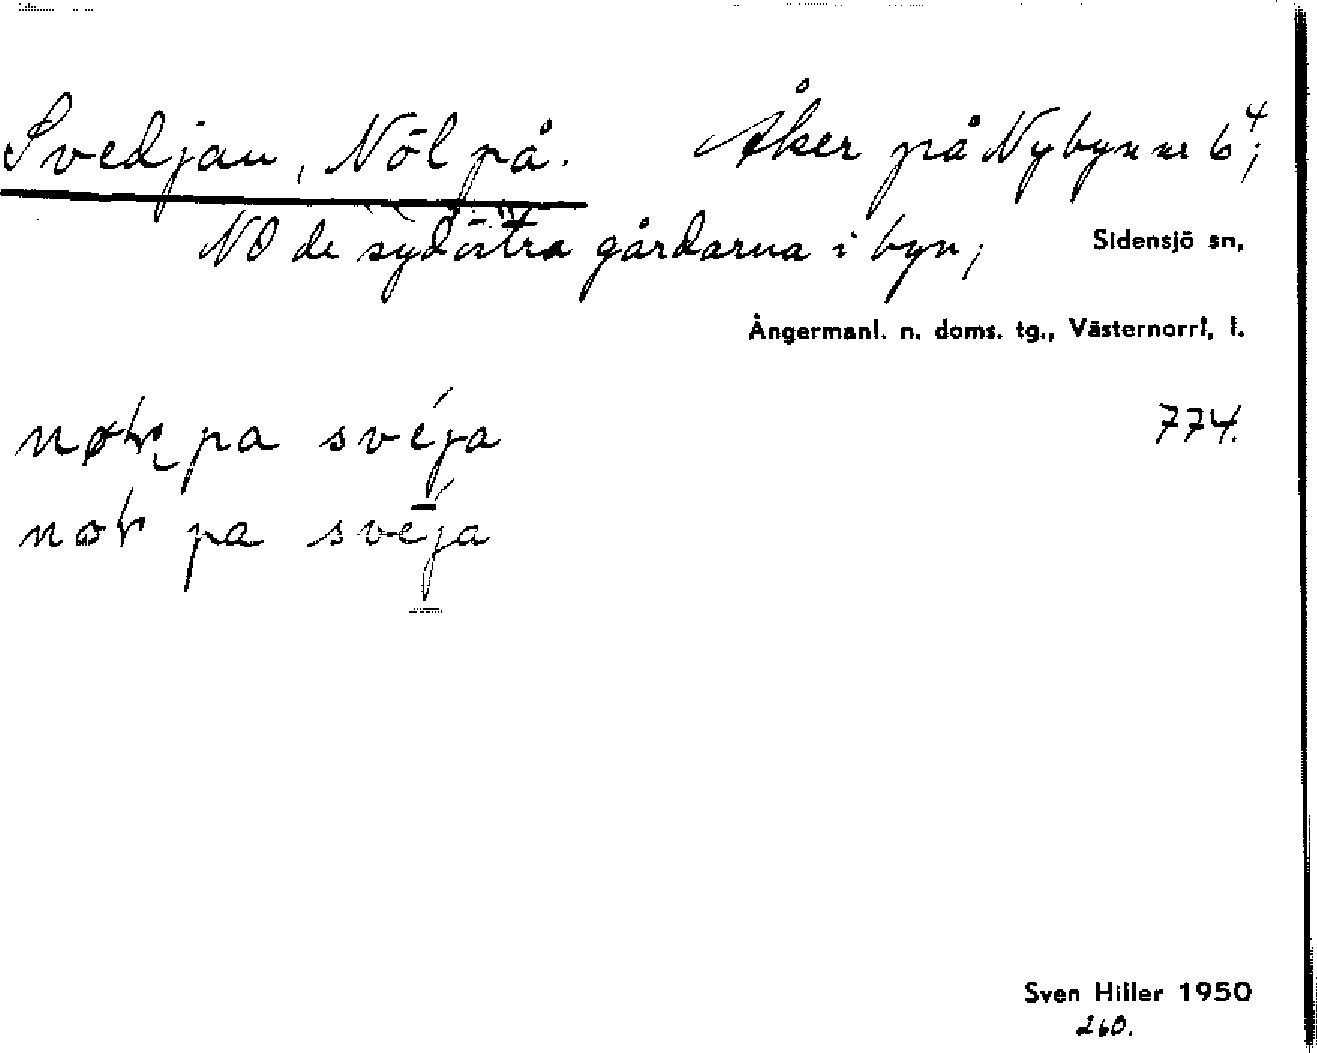 Svedjan, Nöl på. Åker på Nybyn nr 6⁴;
NO de sydöstra gårdarna i byn;
Sidensjö sn,
Ångermanl. n. doms. tg., Västernorrl. l.
pa svéja
774.
pa svéja
Sven Hiller 1950
260.